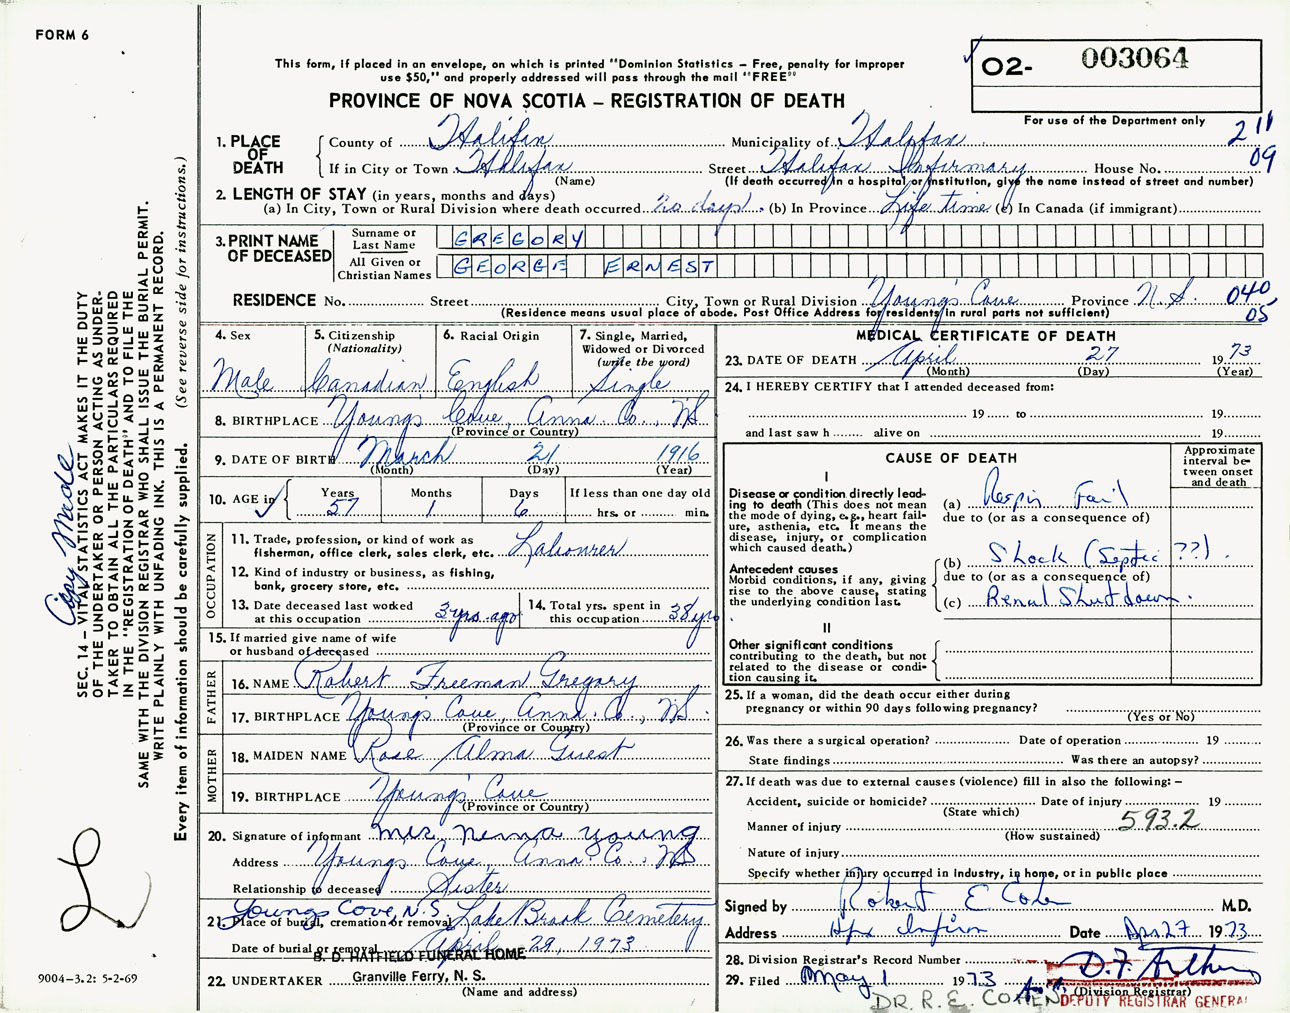 FORM 6
This form, if placed in an envelope, on which is printed "Dominion Statistics – Free, penalty for improper
use $50," and properly addressed will pass through the mail "FREE"
O2- 003064
PROVINCE OF NOVA SCOTIA – REGISTRATION OF DEATH
For use of the Department only
211
09
1. PLACE OF DEATH
County of Halifax Municipality of Halifax
If in City or Town Halifax Street Halifax Infirmary House No.
(Name) (If death occurred in a hospital or institution, give the name instead of street and number)
2. LENGTH OF STAY (in years, months and days)
(a) In City, Town or Rural Division where death occurred days. (b) In Province Life time (c) In Canada (if immigrant)
3. PRINT NAME OF DECEASED
Surname or Last Name GREGORY
All Given or Christian Names GEORGE ERNEST
RESIDENCE No. Street City, Town or Rural Division Young's Cove Province N.S. 040
05
(Residence means usual place of abode. Post Office Address for residents in rural parts not sufficient)
4. Sex Male
5. Citizenship (Nationality) Canadian
6. Racial Origin English
7. Single, Married, Widowed or Divorced (write the word) Single
8. BIRTHPLACE Youngs Cove, Anna Co., NS
(Province or Country)
9. DATE OF BIRTH March 21 1916
(Month) (Day) (Year)
10. AGE in Years 57 Months 1 Days 6 If less than one day old hrs. or min.
OCCUPATION
11. Trade, profession, or kind of work as fisherman, office clerk, sales clerk, etc. Labourer
12. Kind of industry or business, as fishing, bank, grocery store, etc.
13. Date deceased last worked at this occupation 3 yrs. ago
14. Total yrs. spent in this occupation 38 yrs.
15. If married give name of wife or husband of deceased
FATHER
16. NAME Robert Freeman Gregory
17. BIRTHPLACE Youngs Cove, Anna. Co., NS.
(Province or Country)
MOTHER
18. MAIDEN NAME Rose Alma Guest
19. BIRTHPLACE Young's Cove
(Province or Country)
20. Signature of informant Mrs. Nema Young
Address Youngs Cove, Anna. Co. NS
Relationship to deceased Sister
21. Place of burial, cremation or removal Youngs Cove, N.S. Lake Brook Cemetery
Date of burial or removal April 29, 1973
B. D. HATFIELD FUNERAL HOME
22. UNDERTAKER Granville Ferry, N. S.
(Name and address)
MEDICAL CERTIFICATE OF DEATH
23. DATE OF DEATH April 27 1973
(Month) (Day) (Year)
24. I HEREBY CERTIFY that I attended deceased from:
19 to 19
and last saw h alive on 19
CAUSE OF DEATH
Approximate interval between onset and death
I
Disease or condition directly leading to death (This does not mean the mode of dying, e.g., heart failure, asthenia, etc. It means the disease, injury, or complication which caused death.)
(a) Respir Fail
due to (or as a consequence of)
Antecedent causes
Morbid conditions, if any, giving rise to the above cause, stating the underlying condition last.
(b) Shock (Septic ??).
due to (or as a consequence of)
(c) Renal Shutdown.
II
Other significant conditions
contributing to the death, but not related to the disease or condition causing it.
25. If a woman, did the death occur either during pregnancy or within 90 days following pregnancy?
(Yes or No)
26. Was there a surgical operation? Date of operation 19
State findings Was there an autopsy?
27. If death was due to external causes (violence) fill in also the following: –
Accident, suicide or homicide? Date of injury 19
(State which)
Manner of injury 593.2
(How sustained)
Nature of injury
Specify whether injury occurred in industry, in home, or in public place
Signed by Robert E Cohen M.D.
Address Hfx Infirm Date Apr 27 1973
28. Division Registrar's Record Number
29. Filed May 1 1973
(Division Registrar)
DR. R. E. COHEN
DEPUTY REGISTRAR GENERAL
SEC. 14 – VITAL STATISTICS ACT MAKES IT THE DUTY
OF THE UNDERTAKER OR PERSON ACTING AS UNDER-
TAKER TO OBTAIN ALL THE PARTICULARS REQUIRED
IN THE "REGISTRATION OF DEATH" AND TO FILE THE
SAME WITH THE DIVISION REGISTRAR WHO SHALL ISSUE THE BURIAL PERMIT.
WRITE PLAINLY WITH UNFADING INK. THIS IS A PERMANENT RECORD.
Every item of information should be carefully supplied. (See reverse side for instructions.)
Copy Made
9004-3.2: 5-2-69